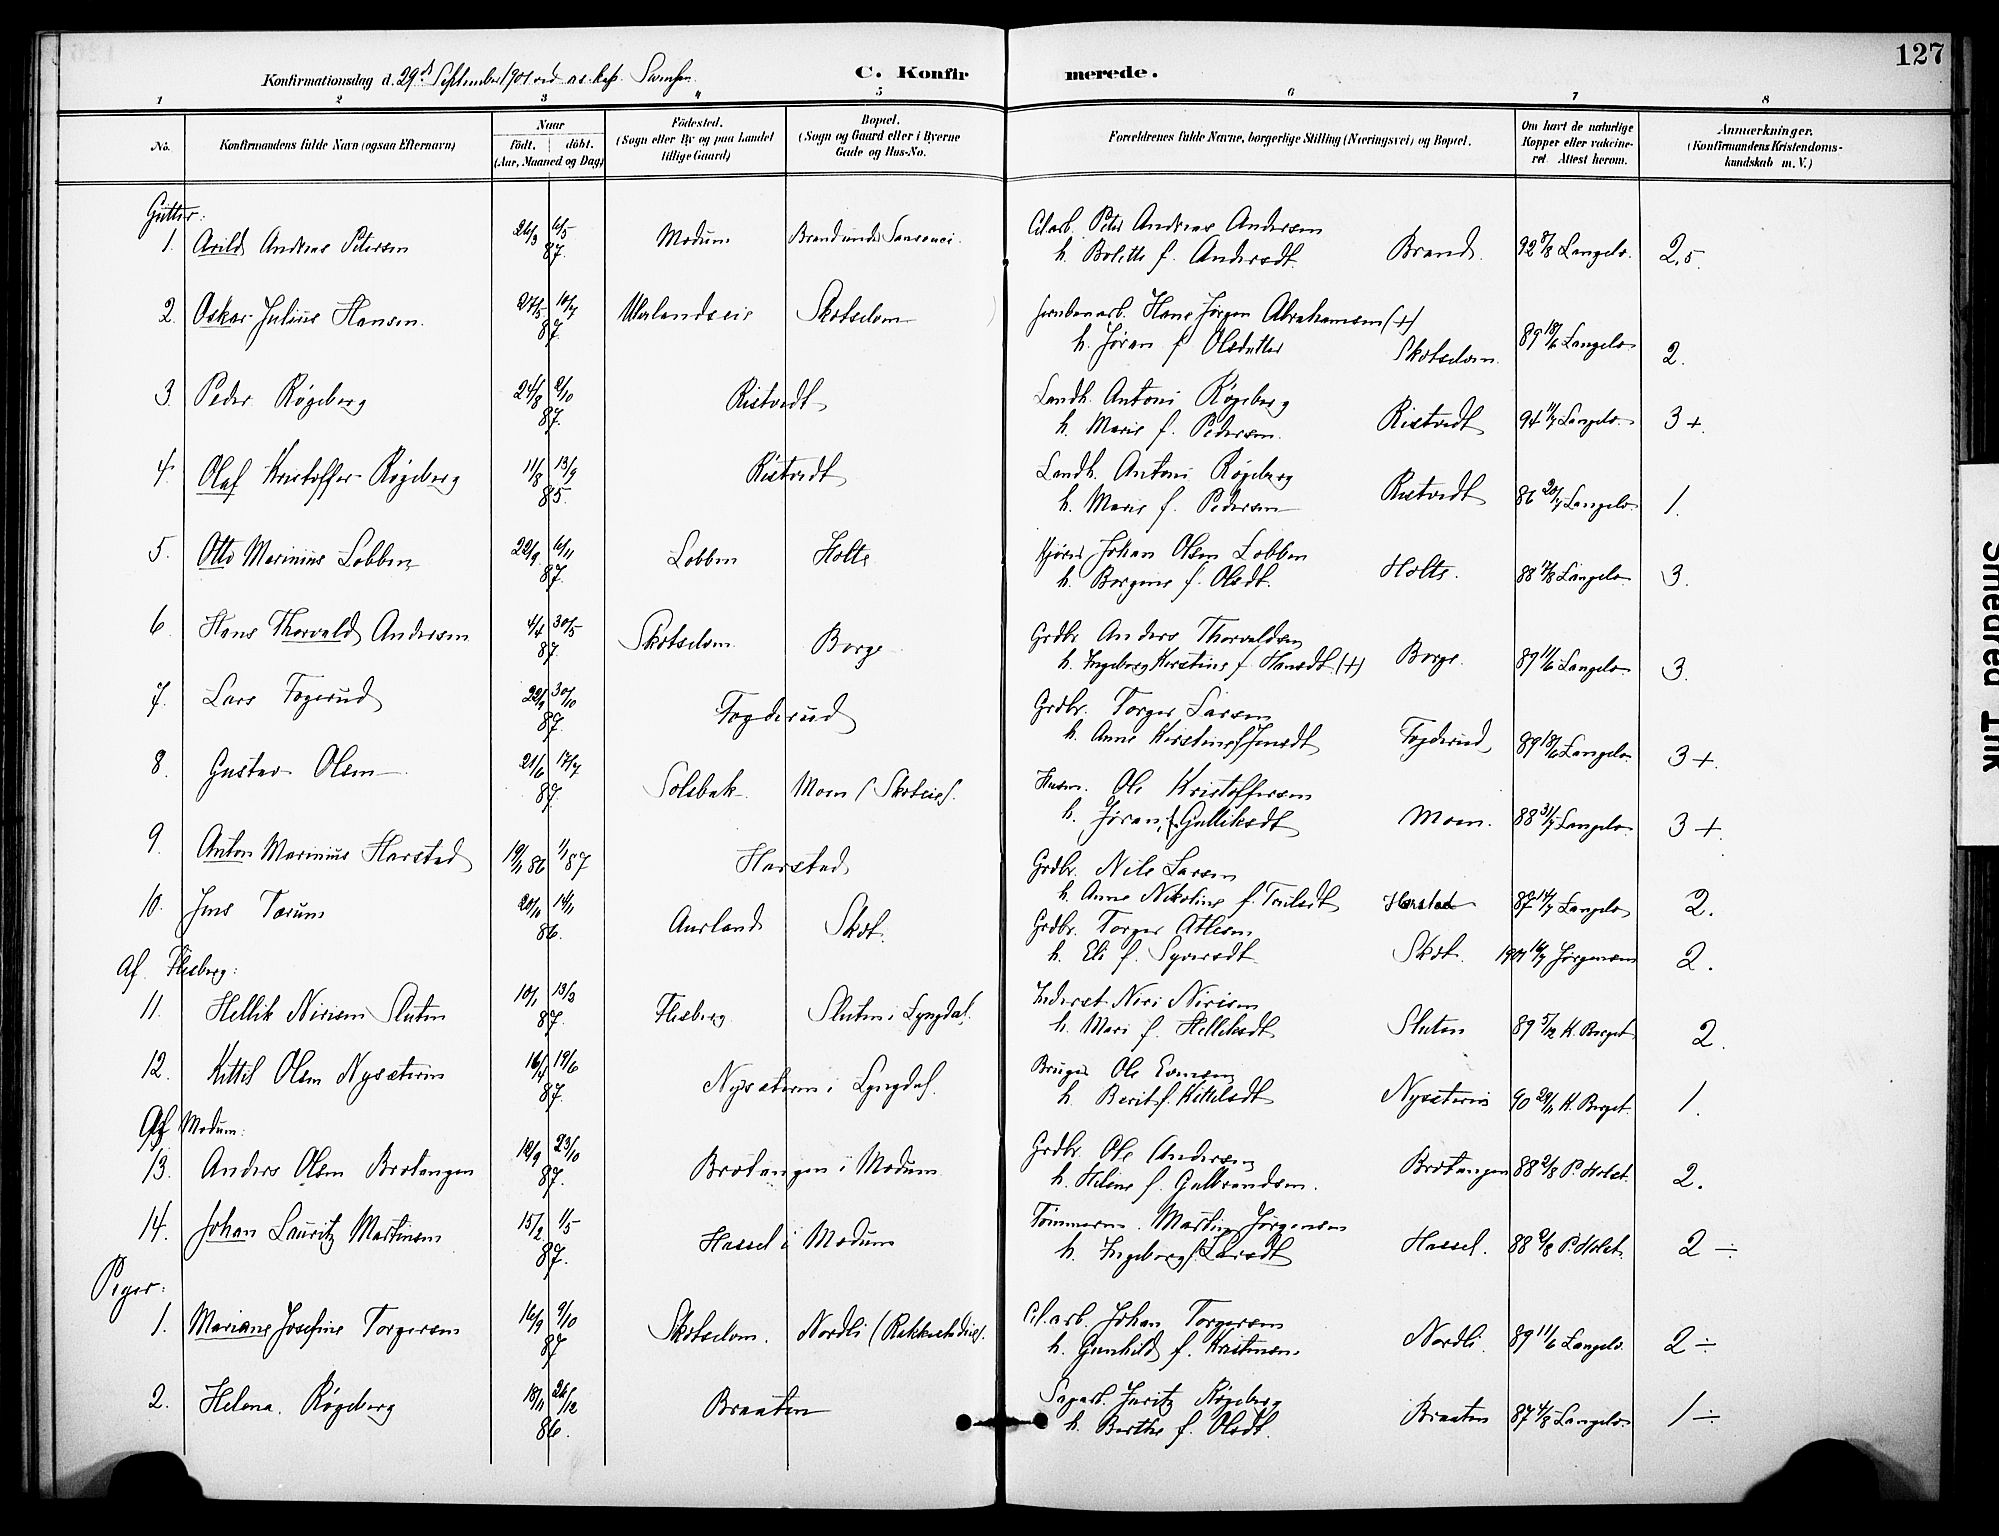 127
Konfirmationsdag d. 29de September 1901 ved
C. Konfirmerede.
1 2 3 4 5 6 7 8
No. Konfirmandens fulde Navn (ogsaa Efternavn) Naar født. døbt. (Aar, Maaned og Dag) Fødested. (Sogn eller By og paa Landet tillige Gaard) Bopæl. (Sogn og Gaard eller i Byerne Gade og Hus-No. Forældrenes fulde Navne, borgerlige Stilling (Næringsvei) og Bopæl. Om havt de naturlige Kopper eller vakcineret. Attest herom. Anmærkninger. (Konfirmandens Kristendomskundskab m. V.)
Gutter:
1. Arild Andreas Petersen 26/3 6/5 87. Modum Brand under Sansouci. Cel.arb. Peter Andreas Andersen
h. Bolette f. Andersdt. Brand. 92 Langelo. 2,5.
2. Oskar Julius Hansen. 27/5 10/7 87. Skotselven Jernbanearb. Hans Jørgen Abrahamsen (+)
h. Jøran f. Olsdatter Skotselven. 89 18/6 Langelo 2.
3. Peder Røgeberg 24/8 2/10 87. Ristvedt Landh. Antoni Røgeberg
h. Marie f. Pedersen. Ristvedt 94 11/7 Langelo. 3+.
4. Olaf Kristoffer Røgeberg 11/8 13/9 85. Ristvedt Landh. Antoni Røgeberg
h. Marie f. Pedersen Ristvedt 86 20/7 Langelo. 1.
5. Otto Marinius Lobben 22/9 6/11 87. Lobben Holte Kjører Johan Olsen Lobben
h. Borgine f. Olsdt. Holte. 88 7/8 Langelo 3.
6. Hans Thorvald Andersen 4/4 30/5 87. Skotselven Borge Grdbr. Anders Thorvaldsen
h. Ingeborg Kirstine f. Hansdt. (+) Borge. 89 11/6 Langelo 3.
7. Lars Fogerud 22/9 30/10 87. Fogderud Grdbr. Torger Larsen
h. Anne Kirstine f. Jensdt Fogderud 89 18/6 Langelo 3+.
8. Gustav Olsen 21/6 17/7 87. Solbak Moen (Skoteie). Husm. Ole Kristoffersen
h. Jøran f. Gulliksdt Moen. 88 31/7 Langelo. 3+.
9. Anton Marinius Harstad 19/11 86 1/1 87 Harstad Grdbr. Nils Larsen
h. Anne Nikoline f. Trulsdt Harstad 87 14/7 Langelo 2.
10. Jens Tærum 20/ 14/11 86. Aurland Skot. Grdbr. Torger Atlesen
h. Eli f. Syversdt. Skot. 1901 Jørgensen 2.
Af Flesberg:
11. Hellik Nirisen Sluten 10/1 13/3 87. Flesberg Sluten i Lyngdal. Inderst Niri Nirisen
h. Mari f. Helliksdt Sluten 89 5/12 K. Berget 2.
12. Kittil Olsen Nysæterin 16/4 19/6 87. Nysæterin i Lyngdal. Bruger Ole Evensen
h. Berit f. Kittelsdt Nysæterin 90 29/11 K. Berget. 1.
Af Modum:
13. Anders Olsen Brotangen 12/9 23/10 87. Brotangen i Modum Grdbr. Ole Andersen
h. Helene f. Gulbrandsen. Brotangen 88 2/8 P. Holst. 2.
14. Johan Lauritz Martinsen 15/2 1/5 87. Hassel i Modum Tømmerm. Martin Jørgensen
h. Ingeborg f. Larsdt Hassel. 88 2/8 P. Holst. 2 ÷
Piger:
1. Mariane Josefine Torgersen 16/9 9/10 87 Skotselven. Nordli Cel.arb. Johan Torgersen
h. Gunhild f. Kristensen Nordli. 89 11/6 Langelo. 2 ÷
2. Helena Røgeberg 18/11 26/12 86. Braaten Sagarb. Juritz Røgeberg
h. Berthe f. Olsdt. Braaten 87 4/8 Langelo 1 ÷
Smedrud Ink